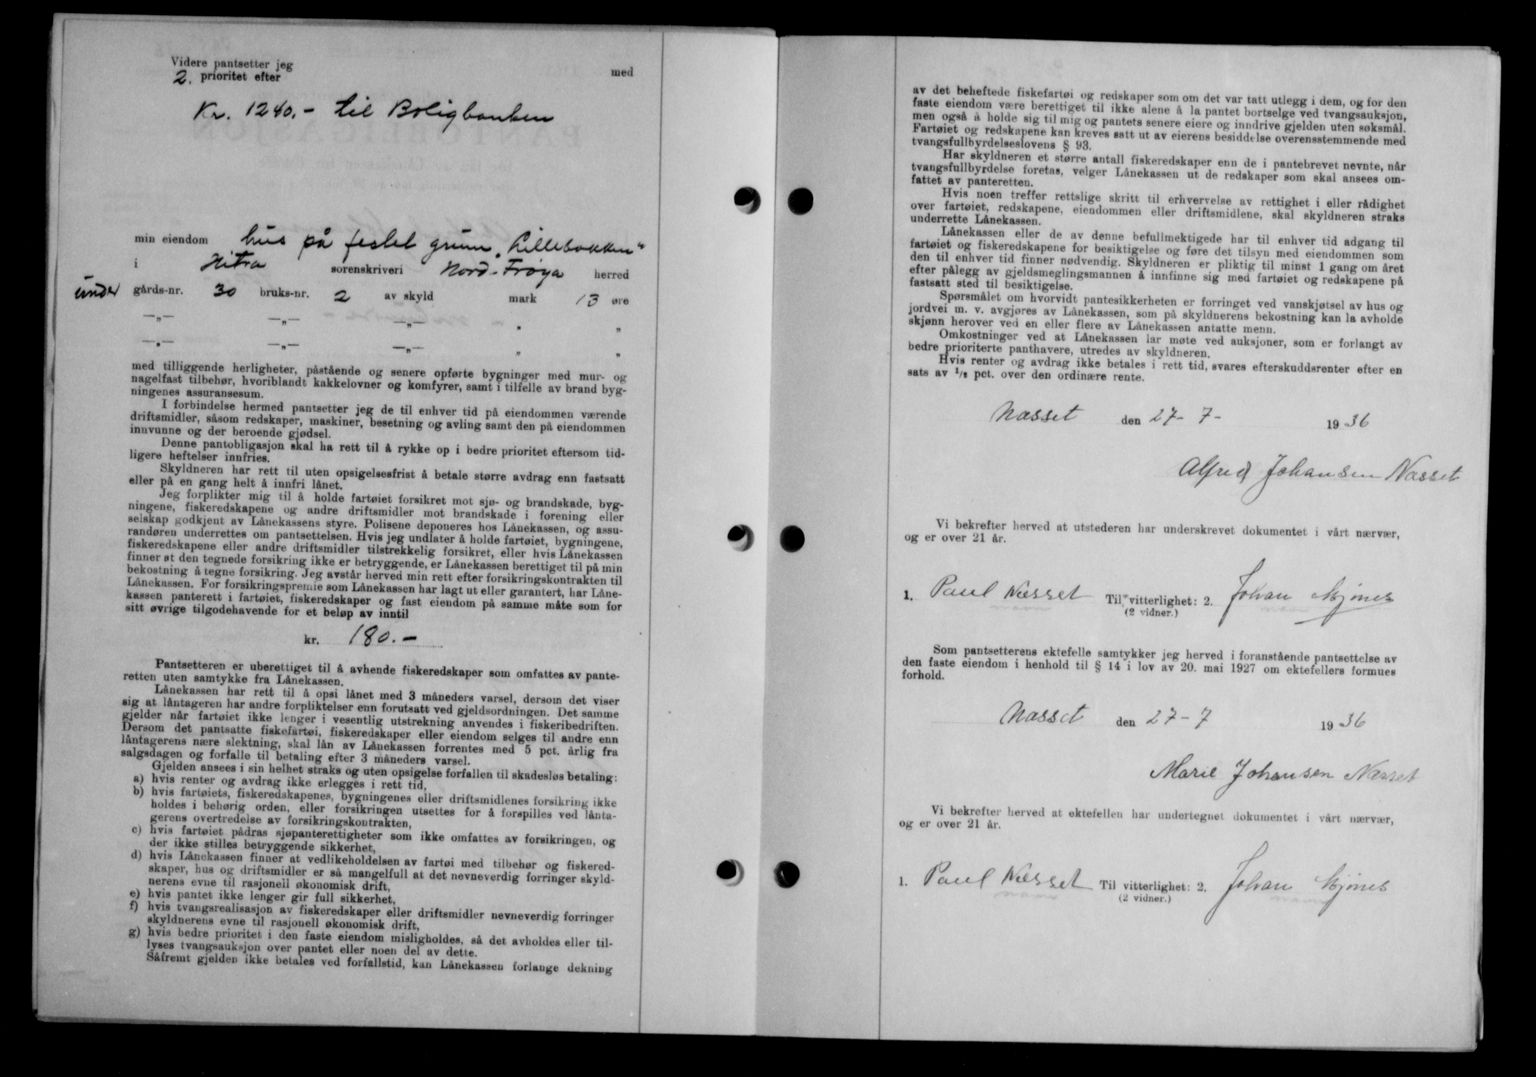 Videre pantsetter jeg
2. prioritet efter med
Kr. 1240.- til Boligbanken
min eiendom hus på festet grunn „Lillebakken"
i Hitra sorenskriveri Nord-Frøya herred
under gårds-nr. 30 bruks-nr. 2 av skyld mark 13 øre
—„— —„— —„— „ „
—„— —„— —„— „ „
med tilliggende herligheter, påstående og senere opførte bygninger med mur- og
nagelfast tilbehør, hvoriblandt kakkelovner og komfyrer, samt i tilfelle av brand byg-
ningenes assuransesum.
I forbindelse hermed pantsetter jeg de til enhver tid på eiendommen værende
driftsmidler, såsom redskaper, maskiner, besetning og avling samt den på eiendommen
innvunne og der beroende gjødsel.
Denne pantobligasjon skal ha rett til å rykke op i bedre prioritet eftersom tid-
ligere heftelser innfries.
Skyldneren har rett til uten opsigelsesfrist å betale større avdrag enn fastsatt
eller på en gang helt å innfri lånet.
Jeg forplikter mig til å holde fartøiet forsikret mot sjø- og brandskade, byg-
ningene, fiskeredskapene og andre driftsmidler mot brandskade i forening eller
selskap godkjent av Lånekassens styre. Polisene deponeres hos Lånekassen, og assu-
randøren underrettes om pantsettelsen. Hvis jeg undlater å holde fartøiet, bygningene,
fiskeredskapene eller andre driftsmidler tilstrekkelig forsikret, eller hvis Lånekassen
finner at den tegnede forsikring ikke er betryggende, er Lånekassen berettiget til på min
bekostning å tegne forsikring. Jeg avstår herved min rett efter forsikringskontrakten til
Lånekassen. For forsikringspremie som Lånekassen har lagt ut eller garantert, har Låne-
kassen panterett i fartøiet, fiskeredskaper og fast eiendom på samme måte som for
sitt øvrige tilgodehavende for et beløp av inntil
kr. 180.-
Pantsetteren er uberettiget til å avhende fiskeredskaper som omfattes av pante-
retten uten samtykke fra Lånekassen.
Lånekassen har rett til å opsi lånet med 3 måneders varsel, dersom det viser
sig at låntageren har andre forpliktelser enn forutsatt ved gjeldsordningen. Det samme
gjelder når fartøiet ikke lenger i vesentlig utstrekning anvendes i fiskeribedriften.
Dersom det pantsatte fiskefartøi, fiskeredskaper eller eiendom selges til andre enn
låntagerens nære slektning, skal lån av Lånekassen forrentes med 5 pct. årlig fra
salgsdagen og forfalle til betaling efter 3 måneders varsel.
Gjelden ansees i sin helhet straks og uten opsigelse forfallen til skadesløs betaling:
a) hvis renter og avdrag ikke erlegges i rett tid,
b) hvis fartøiets, fiskeredskapenes, bygningenes eller driftsmidlenes forsikring ikke
holdes i behørig orden, eller forsikringen utsettes for å forspilles ved lånta-
gerens overtredelse av forsikringskontrakten,
c) hvis fartøiet pådras sjøpanterettigheter som ikke omfattes av forsikringen, og
der ikke stilles betryggende sikkerhet,
d) hvis Lånekassen finner at vedlikeholdelsen av fartøi med tilbehør og fiskered-
skaper, hus og driftsmidler er så mangelfull at det nevneverdig forringer skyld-
nerens evne til rasjonell økonomisk drift,
e) hvis pantet ikke lenger gir full sikkerhet,
f) hvis tvangsrealisasjon av fiskeredskaper eller driftsmidler nevneverdig forringer
skyldnerens evne til rasjonell økonomisk drift,
g) hvis bedre prioritet i den faste eiendom misligholdes, så det avholdes eller til-
lyses tvangsauksjon over pantet eller noen del av dette.
Såfremt gjelden ikke betales ved forfallstid, kan Lånekassen forlange dekning
av det beheftede fiskefartøi og redskaper som om det var tatt utlegg i dem, og for den
faste eiendom være berettiget til ikke alene å la pantet bortselge ved tvangsauksjon,
men også å holde sig til mig og pantets senere eiere og inndrive gjelden uten søksmål.
Fartøiet og redskapene kan kreves satt ut av eierens besiddelse overensstemmende med
tvangsfullbyrdelseslovens § 93.
Har skyldneren et større antall fiskeredskaper enn de i pantebrevet nevnte, når
tvangsfullbyrdelse foretas, velger Lånekassen ut de redskaper som skal ansees om-
fattet av panteretten.
Hvis noen treffer rettslige skritt til erhvervelse av rettighet i eller rådighet
over fartøiet, redskapene, eiendommen eller driftsmidlene, skal skyldneren straks
underrette Lånekassen.
Lånekassen eller de av denne befullmektigede har til enhver tid adgang til
fartøiet og fiskeredskapene for besiktigelse og føre det tilsyn med eiendommen som
den til enhver tid finner nødvendig. Skyldneren er pliktig til minst 1 gang om året
efter pålegg av gjeldsmeglingsmannen å innfinne sig med fartøiet og redskapene på
fastsatt sted til besiktigelse.
Spørsmålet om hvorvidt pantesikkerheten er forringet ved vanskjøtsel av hus og
jordvei m. v. avgjøres av Lånekassen, som på skyldnerens bekostning kan la avholde
skjønn herover ved en eller flere av Lånekassen antatte menn.
Omkostninger ved at Lånekassen lar møte ved auksjoner, som er forlangt av
bedre prioriterte panthavere, utredes av skyldneren.
Hvis renter og avdrag ikke betales i rett tid, svares efterskuddsrenter efter en
sats av ½ pct. over den ordinære rente.
Nasset den 27-7- 1936
Alfred Johansen Nasset
Vi bekrefter herved at utstederen har underskrevet dokumentet i vårt nærvær,
og er over 21 år.
1. Paul Næsset Til vitterlighet: 2. Johan Mjønes
(2 vidner.)
Som pantsetterens ektefelle samtykker jeg herved i foranstående pantsettelse av
den faste eiendom i henhold til § 14 i lov av 20. mai 1927 om ektefellers formues
forhold.
Nasset den 27-7 1936
Marie Johansen Nasset
Vi bekrefter herved at ektefellen har undertegnet dokumentet i vårt nærvær,
og er over 21 år.
1. Paul Næsset Til vitterlighet: 2. Johan Mjønes
(2 vidner.)